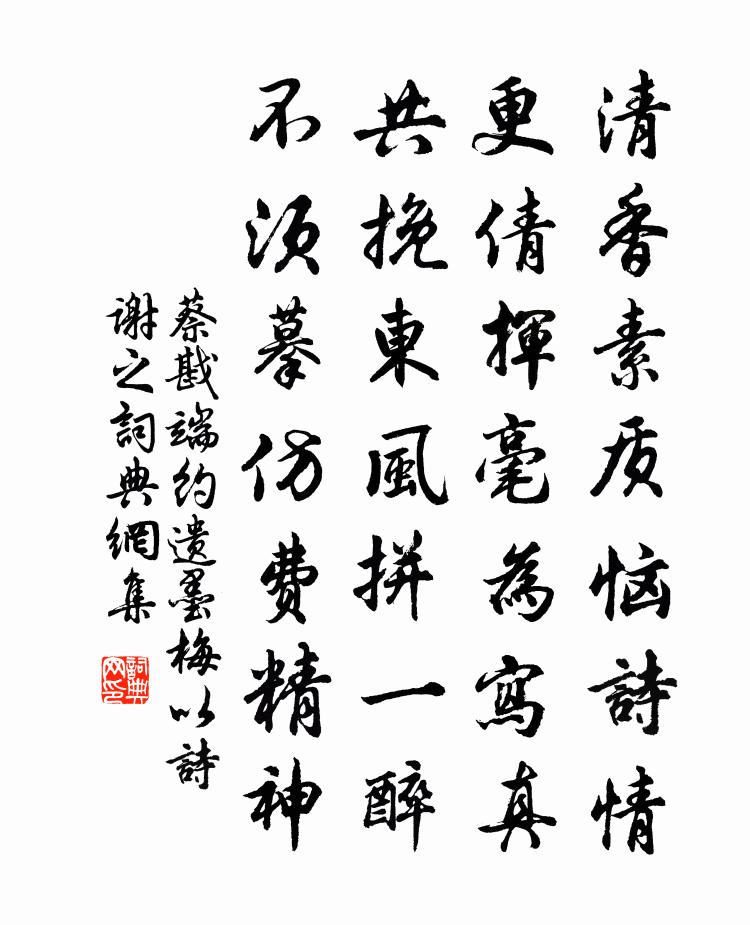 清香素质恼詩情
更倩揮毫為寫真
共挽東風拼一醉
不须摹仿費精神
蔡戡端约遗墨梅以詩
谢之詞典網集
詞典网印